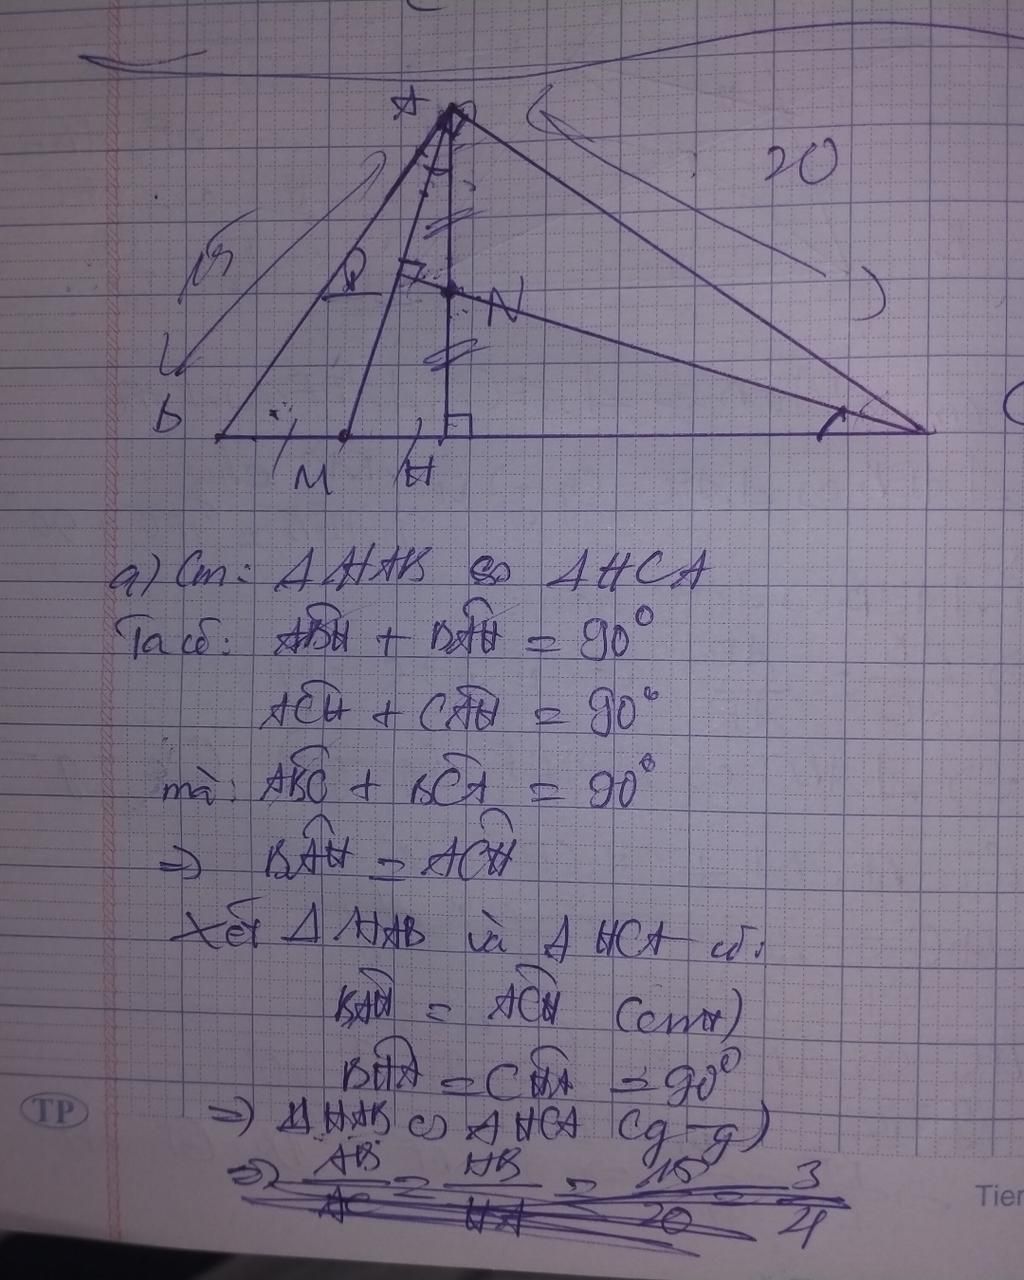 A
20
15
Q
N
B
M
H
C
a) Cm: Δ HAB ∽ Δ HCA
Ta có: ABH + BAH = 90°
ACH + CAH = 90°
mà: ABC + BCA = 90°
=> BAH = ACH
Xét Δ HAB và Δ HCA có:
BAH = ACH (cmt)
BHA = CHA = 90°
TP
=> Δ HAB ∽ Δ HCA (g-g)
=> AB/AC = HB/HA = 15/20 = 3/4
Tien